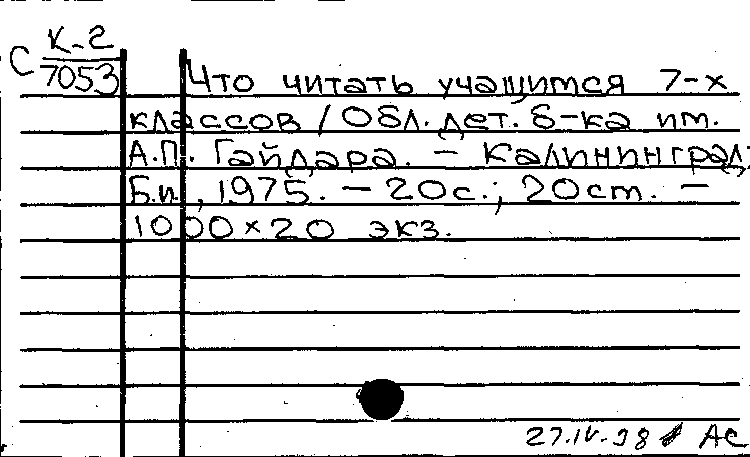 С К-2
7053
Что читать учащимся 7-х
классов / Обл. дет. б-ка им.
А.П. Гайдара. – Калининград:
Б.и., 1975. – 20с.; 20 см. –
1000 × 20 экз.
27.IV.98 АС